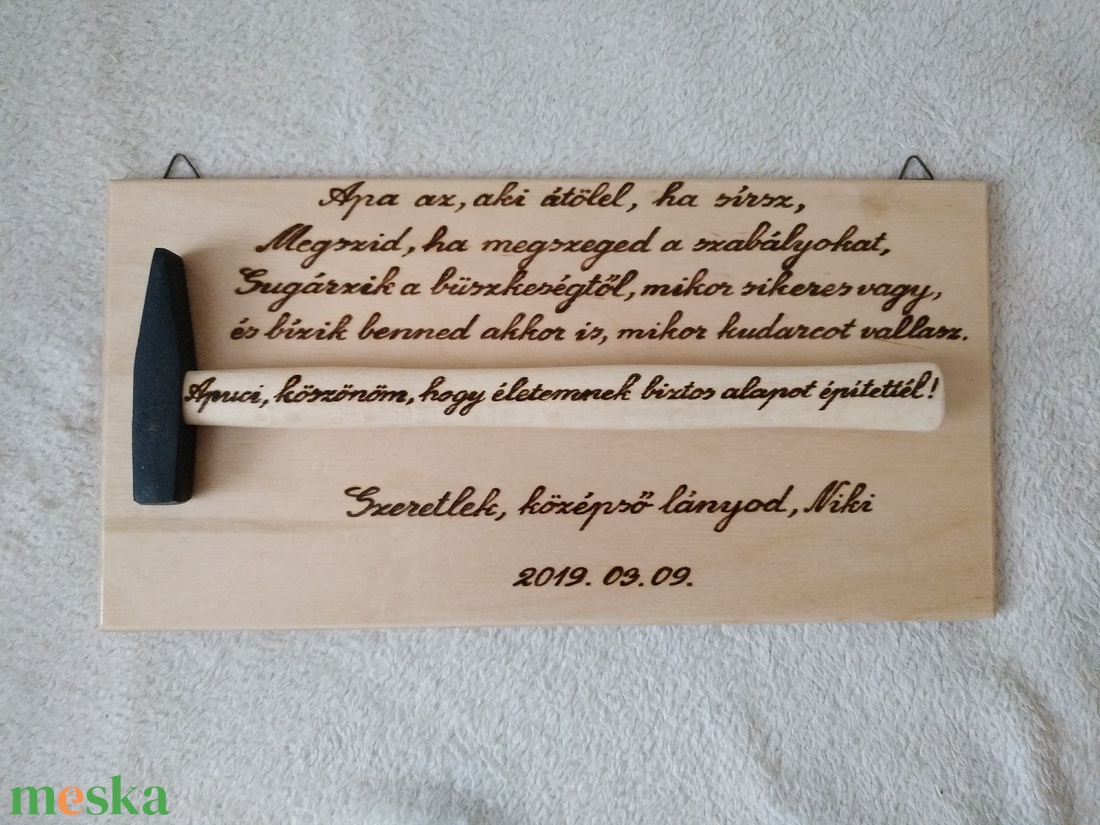 Apa az, aki átölel, ha sírsz,
Megszid, ha megszeged a szabályokat,
Sugárzik a büszkeségtől, mikor sikeres vagy,
és bízik benned akkor is, mikor kudarcot vallasz.
Apuci, köszönöm, hogy életemnek biztos alapot építettél!
Szeretlek, középső lányod, Niki
2019. 03. 09.
meska